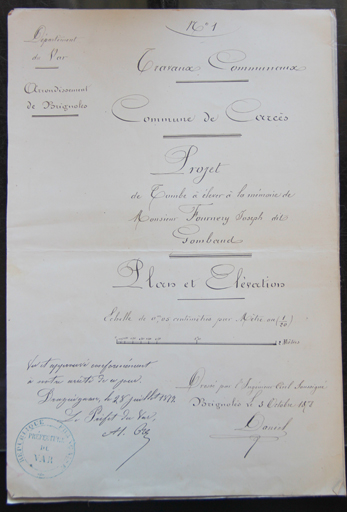 N° 1
Département
du Var
Arrondissement
de Brignoles
Travaux Communaux
Commune de Carcès
Projet
de Tombe à élever à la mémoire de
Monsieur Fournery Joseph dit
Gombaud
Plan et Elévation
Echelle de 0m,02 centimètres pour Mètre ou (1/50)
Mètres
Vu et approuvé conformément
à notre arrêté de ce jour
Draguignan, le 28 juillet 1872
Le Préfet du Var,
Dressé par l'Ingénieur Civil Soussigné
Brignoles le 3 Octobre 1871
Daniel
REPUBLIQUE FRANÇAISE
PRÉFECTURE
DU
VAR